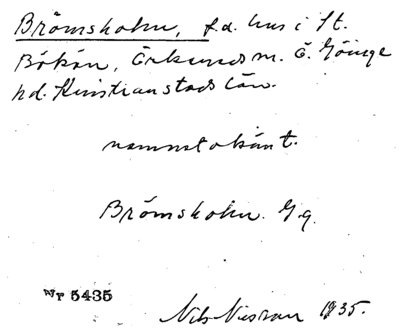 Brömsholm, f.d. hus i St.
Bökön, Örkeneds sn. Ö. Göinge
hd. Kristianstads län.
namnet okänt.
Brömsholm. Gg.
Nr 5435
Nils Nilsson 1935.